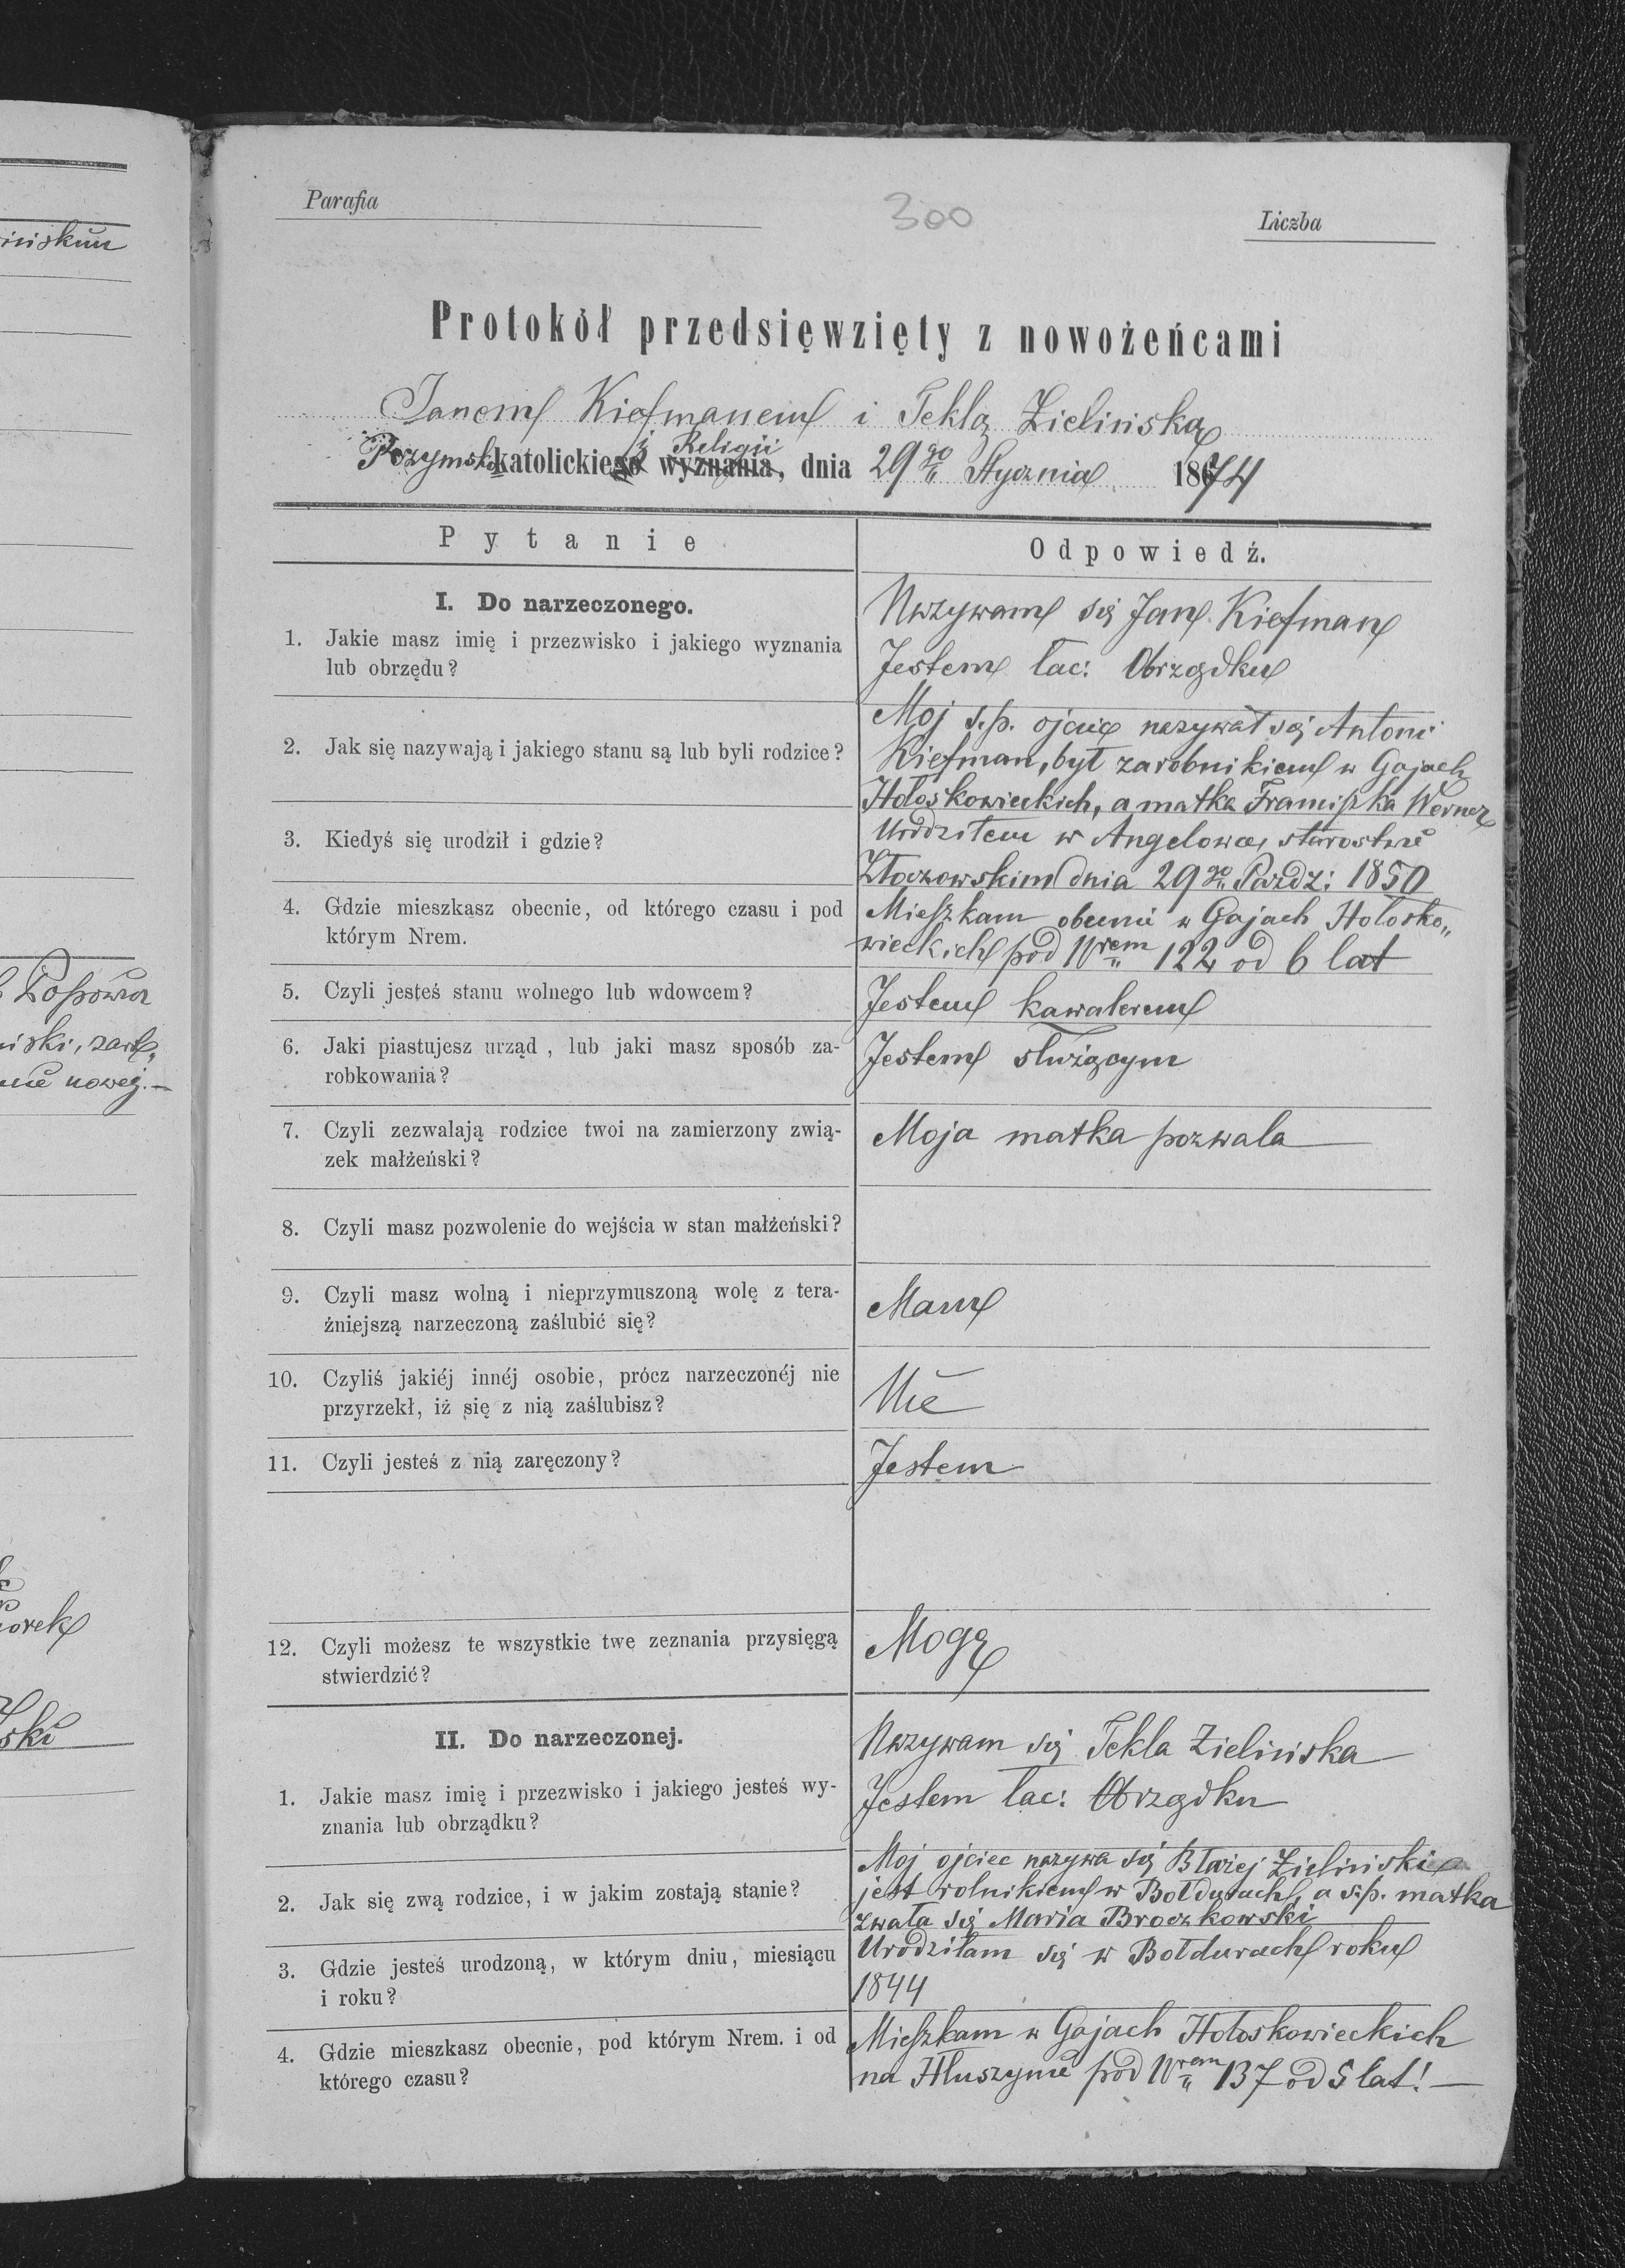 iński
Parafia
300
Liczba
Protokół przedsięwzięty z nowożeńcami
Janem Kiefmanem i Teklą Zielińską
Rzymsko katolickiego j wyznania Religii, dnia 29go Stycznia 1874
Pytanie
Odpowiedź.
I. Do narzeczonego.
1. Jakie masz imię i przezwisko i jakiego wyznania
lub obrzędu?
Nazywam się Jan Kiefman
Jestem łac: Obrządku
2. Jak się nazywają i jakiego stanu są lub byli rodzice?
Moj ś.p. ojciec nazywał się Antoni
Kiefman, był zarobnikiem w Gajach
Hołoskowieckich, a matka Franciszka Werner
3. Kiedyś się urodził i gdzie?
Urodziłem w Angelowce, starostwie
Złoczowskim dnia 29go Pazdz: 1850
4. Gdzie mieszkasz obecnie, od którego czasu i pod
którym Nrem.
Mieszkam obecnie w Gajach Holosko„
wieckich pod Nrem 122 od 6 lat
5. Czyli jesteś stanu wolnego lub wdowcem?
Jestem kawalerem
6. Jaki piastujesz urząd, lub jaki masz sposób za-
robkowania?
Jestem służącym
7. Czyli zezwalają rodzice twoi na zamierzony zwią-
zek małżeński?
Moja matka pozwala
8. Czyli masz pozwolenie do wejścia w stan małżeński?
9. Czyli masz wolną i nieprzymuszoną wolę z tera-
źniejszą narzeczoną zaślubić się?
Mam
10. Czyliś jakiéj innéj osobie, prócz narzeczonéj nie
przyrzekł, iż się z nią zaślubisz?
Nie
11. Czyli jesteś z nią zaręczony?
Jestem
12. Czyli możesz te wszystkie twe zeznania przysięgą
stwierdzić?
Mogę
II. Do narzeczonej.
1. Jakie masz imię i przezwisko i jakiego jesteś wy-
znania lub obrządku?
Nazywam się Tekla Zielińska
Jestem łac: Obrządku
2. Jak się zwą rodzice, i w jakim zostają stanie?
Moj ojciec nazywa się Błażej Zieliński
jest rolnikiem w Bołdurach, a ś.p. matka
zwała się Maria Broczkowski
3. Gdzie jesteś urodzoną, w którym dniu, miesiącu
i roku?
Urodziłam się w Bołdurach roku
1844
4. Gdzie mieszkasz obecnie, pod którym Nrem. i od
którego czasu?
Mieszkam w Gajach Hołoskowieckich
na Hłuszynie pod Nrem 137 od 5 lat! —